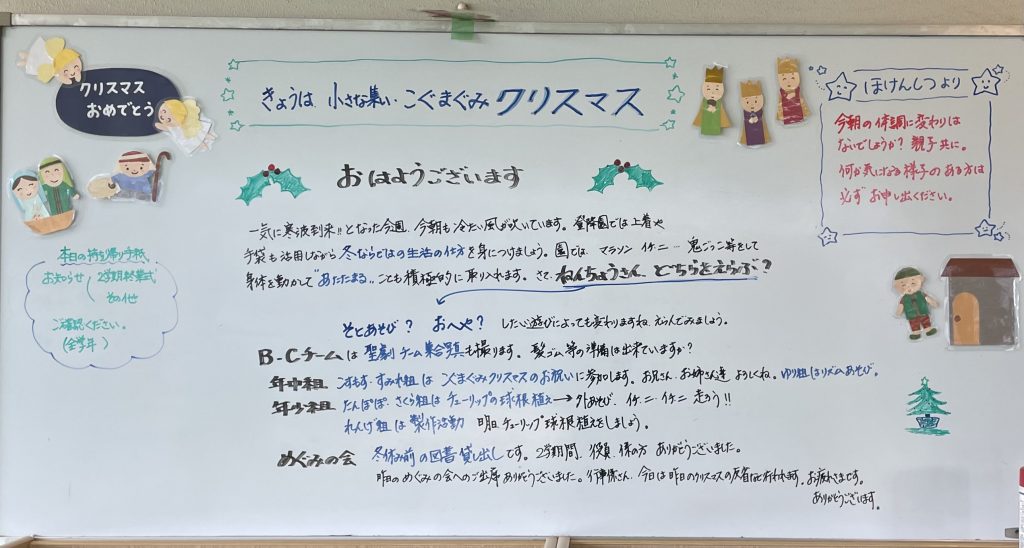 クリスマス
おめでとう
きょうは 小さな集い・こぐまぐみ クリスマス
ほけんしつより
今朝の体調に変わりは
ないでしょうか? 親子共に。
何か気になる様子のある方は
必ず お申し出ください。
おはようございます
一気に寒波到来!! となった今週、今朝も冷たい風が吹いています。登降園では上着や
手袋も活用しながら 冬ならではの生活の仕方を身につけましょう。園では、マラソン イチ・ニ… 鬼ごっこ等をして
身体を動かして "あたたまる" ことも積極的に取り入れます。さて、ねんちょうさん、どちらをえらぶ?
そとあそび? おへや? したい遊びによっても変わりますね、えらんでみましょう。
B・Cチームは 聖劇 チーム集合写真も撮ります。髪ゴム等の準備は出来ていますか?
年中組 こすもす・すみれ組は こぐまぐみクリスマスのお祝いに参加します。お兄さん・お姉さん達 よろしくね。ゆり組はリズムあそび。
年少組 たんぽぽ・さくら組は チューリップの球根植え→外あそび、イチ・ニ・イチ・ニ 走ろう!!
れんげ組は 製作活動 明日チューリップ球根植えをしましょう。
めぐみの会 冬休み前の図書貸し出しです。2学期間、役員・係の方 ありがとうございました。
昨日の めぐみの会へのご出席 ありがとうございました。行事係さん、今日は昨日のクリスマスの反省など行われます。お疲れさまです。
ありがとうございます。
本日の持ち帰り手紙
お知らせ 2学期終業式
その他
ご確認ください。
(全学年)